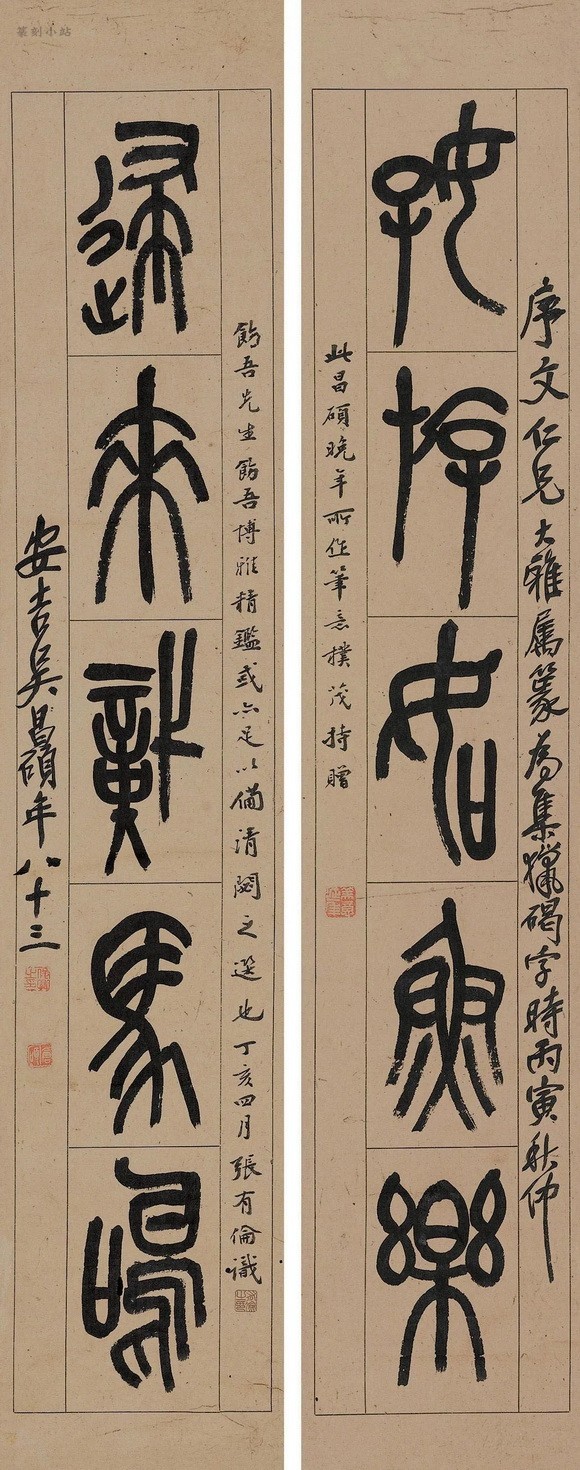 序文仁兄大雅屬篆為集獵碣字時丙寅秋仲
好斿如魚樂
此昌碩晚年所作筆意樸茂持贈
飭吾先生飭吾博雅精鑑或亦足以備清閟之選也丁亥四月張有倫識
歸來馬鳴
安吉吳昌碩年八十三
篆刻小站